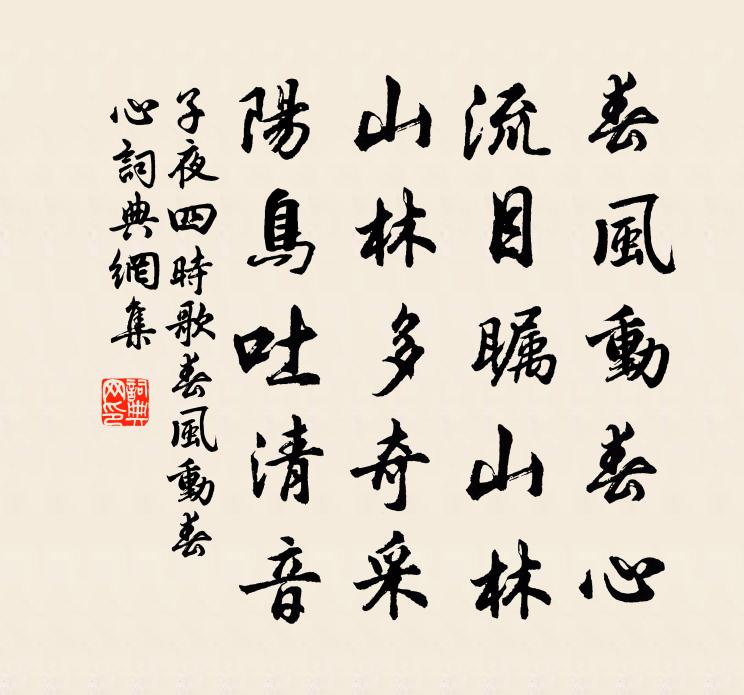 春風動春心
流目矚山林
山林多奇采
陽鳥吐清音
子夜四時歌春風動春
心詞典網集
詞典網印